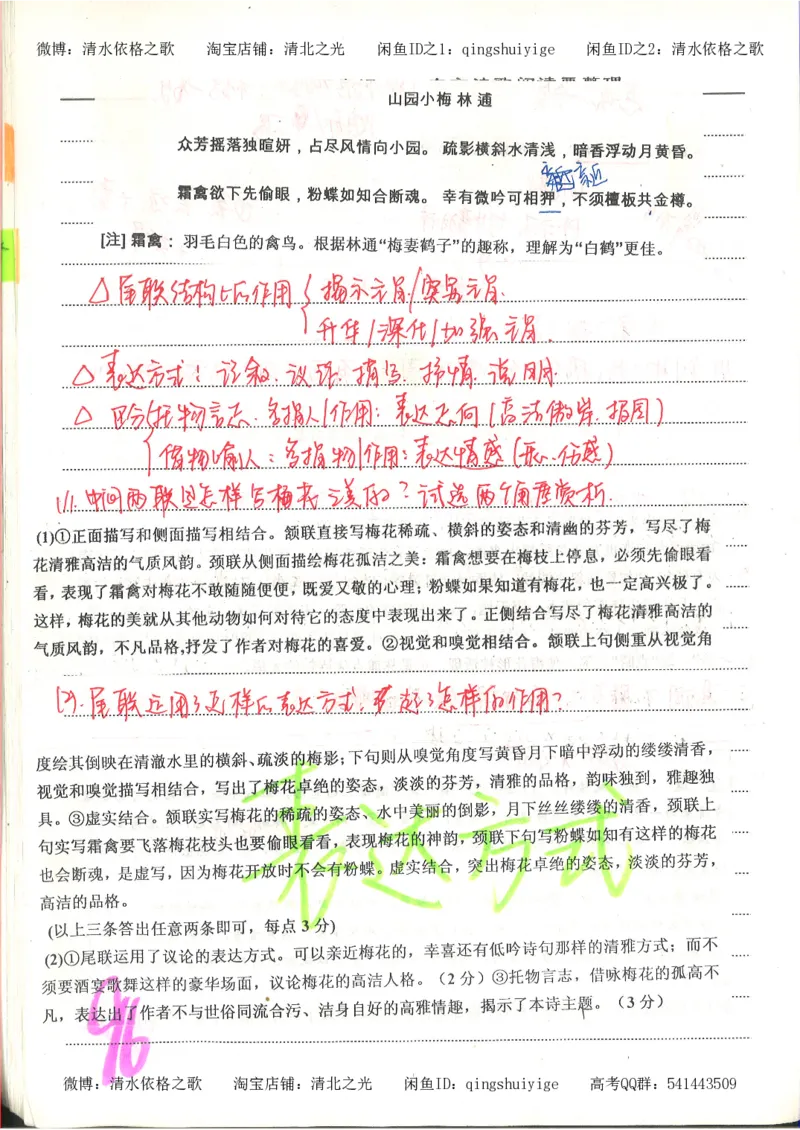 微博：清水依格之歌 淘宝店铺：清北之光 闲鱼ID之1：qingshuiyige 闲鱼ID之2：清水依格之歌
山园小梅 林逋
众芳摇落独暄妍，占尽风情向小园。疏影横斜水清浅，暗香浮动月黄昏。
亲近
霜禽欲下先偷眼，粉蝶如知合断魂。幸有微吟可相狎，不须檀板共金樽。
[注] 霜禽：羽毛白色的禽鸟。根据林逋“梅妻鹤子”的趣称，理解为“白鹤”更佳。
△尾联结构上的作用 { 揭示主旨/突出主旨.
升华/深化/加强主旨.
△表达方式：记叙.议论.描写.抒情.说明.
△区分{托物言志.多指人/作用：表达志向（高洁傲岸.报国）
借物喻人：多指物/作用：表达情感（忠心.伤感）
(1).中间两联是怎样写梅花之美的？试选两个角度赏析.
(1)①正面描写和侧面描写相结合。颔联直接写梅花稀疏、横斜的姿态和清幽的芬芳，写尽了梅
花清雅高洁的气质风韵。颈联从侧面描绘梅花孤洁之美：霜禽想要在梅枝上停息，必须先偷眼看
看，表现了霜禽对梅花不敢随随便便，既爱又敬的心理；粉蝶如果知道有梅花，也一定高兴极了。
这样，梅花的美就从其他动物如何对待它的态度中表现出来了。正侧结合写尽了梅花清雅高洁的
气质风韵，不凡品格,抒发了作者对梅花的喜爱。②视觉和嗅觉相结合。颔联上句侧重从视觉角
(2).尾联运用了怎样的表达方式.起了怎样的作用？
度绘其倒映在清澈水里的横斜、疏淡的梅影；下句则从嗅觉角度写黄昏月下暗中浮动的缕缕清香，
视觉和嗅觉描写相结合，写出了梅花卓绝的姿态，淡淡的芬芳，清雅的品格，韵味独到，雅趣独
具。③虚实结合。颔联实写梅花的稀疏的姿态、水中美丽的倒影，月下丝丝缕缕的清香，颈联上
句实写霜禽要飞落梅花枝头也要偷眼看看，表现梅花的神韵，颈联下句写粉蝶如知有这样的梅花
也会断魂，是虚写，因为梅花开放时不会有粉蝶。虚实结合，突出梅花卓绝的姿态，淡淡的芬芳，
高洁的品格。
表达方式
(以上三条答出任意两条即可，每点 3 分)
(2)①尾联运用了议论的表达方式。可以亲近梅花的，幸喜还有低吟诗句那样的清雅方式；而不
须要酒宴歌舞这样的豪华场面，议论梅花的高洁人格。（2 分）③托物言志，借咏梅花的孤高不
凡，表达出了作者不与世俗同流合污、洁身自好的高雅情趣，揭示了本诗主题。（3 分）
96
微博：清水依格之歌 淘宝店铺：清北之光 闲鱼ID：qingshuiyige 高考QQ群：541443509